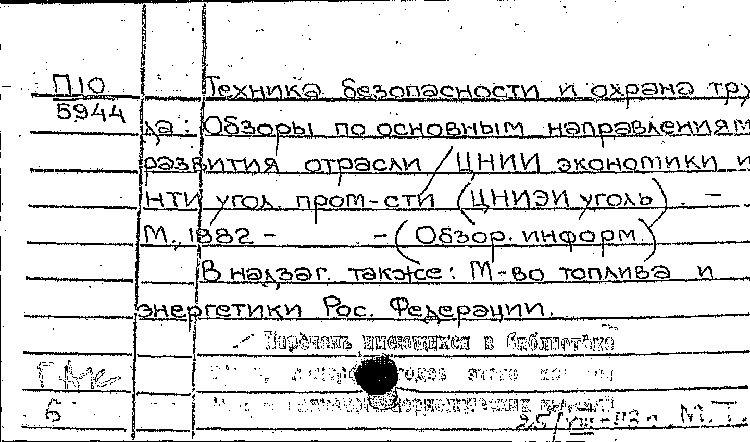 П10
5944
Техника безопасности и охрана тру
да: Обзоры по основным направлениям
развития отрасли / ЦНИИ экономики и
НТИ угол. пром-сти (ЦНИЭИ уголь). –
М., 1982 – – (Обзор. информ.)
В надзаг. также: М-во топлива и
энергетики Рос. Федерации.
Перечень имеющихся в библиотеке
6
М.Т.